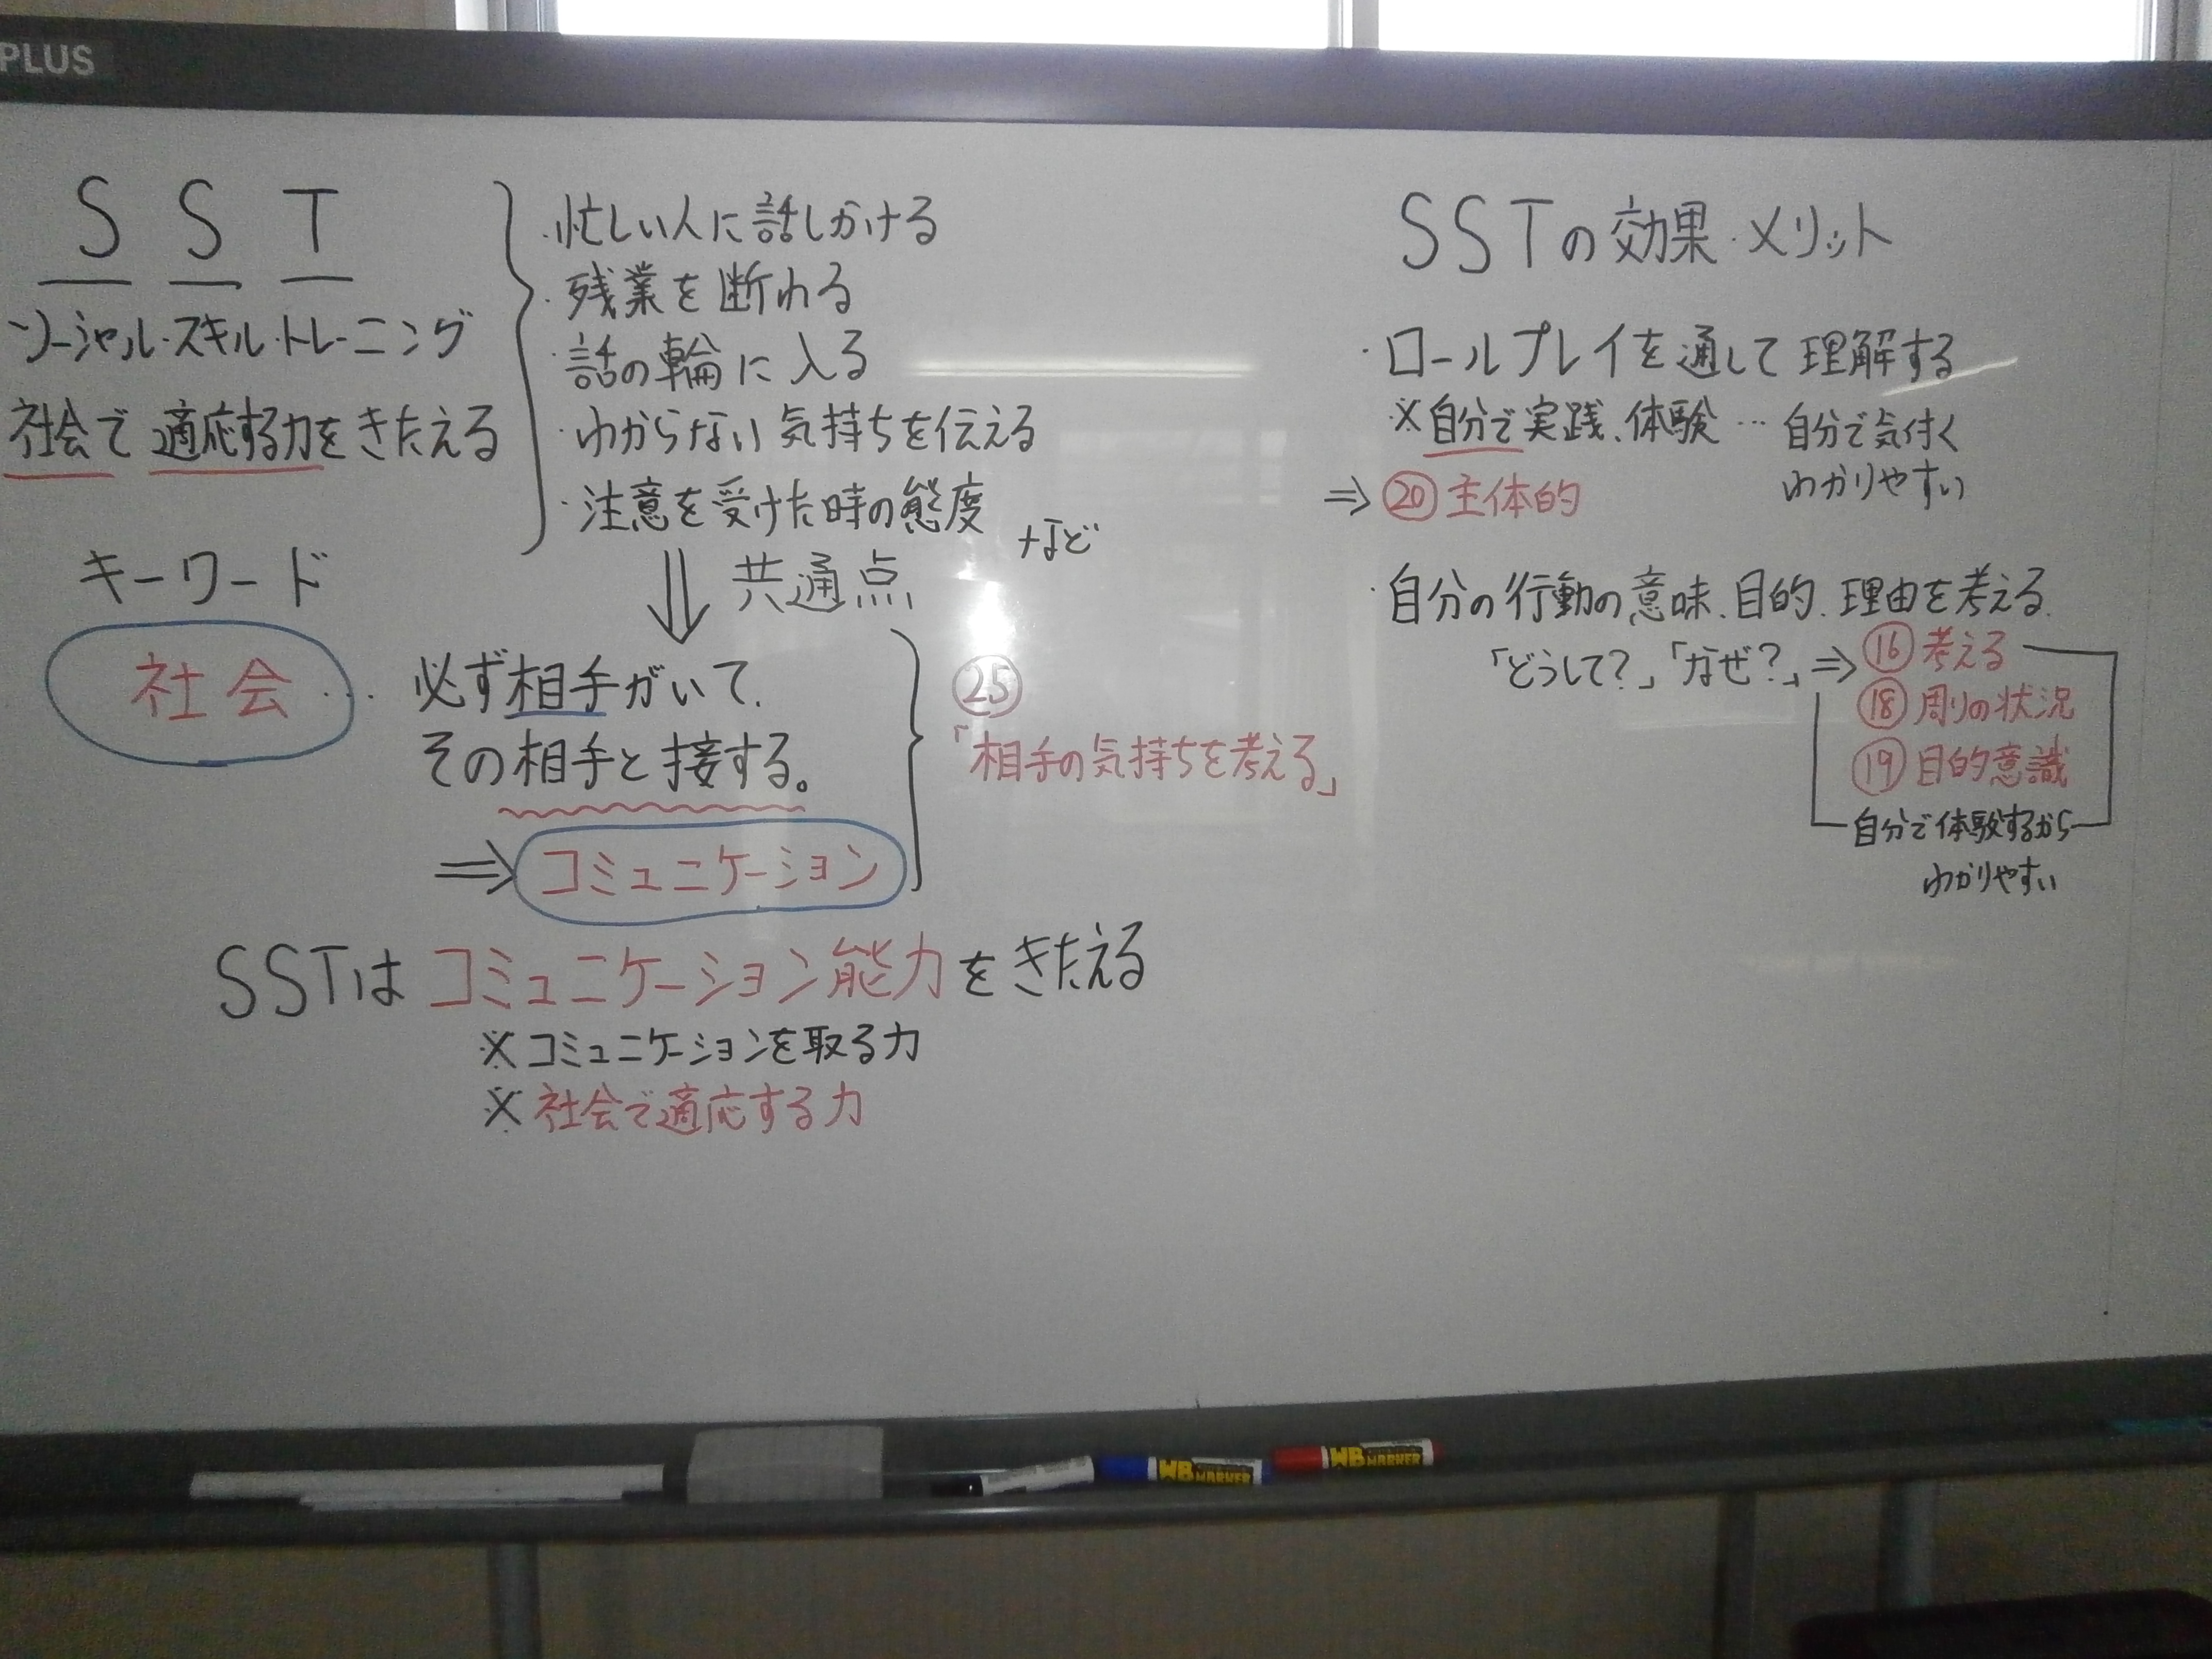 PLUS
SST
ソーシャル・スキル・トレーニング
社会で適応する力をきたえる
・忙しい人に話しかける
・残業を断わる
・話の輪に入る
・わからない気持ちを伝える
・注意を受けた時の態度
+など
⇓ 共通点
キーワード
社会…
必ず相手がいて、
その相手と接する。
⇒コミュニケーション
㉕
「相手の気持ちを考える」
SSTはコミュニケーション能力をきたえる
※コミュニケーションを取る力
※社会で適応する力
SSTの効果・メリット
・ロールプレイを通して理解する
※自分で実践、体験…自分で気付く
わかりやすい
⇒⑳主体的
・自分の行動の意味、目的、理由を考える。
「どうして?」「なぜ?」⇒⑯考える
⑱周りの状況
⑲目的意識
自分で体験するから
わかりやすい
WB MARKER
WB MARKER